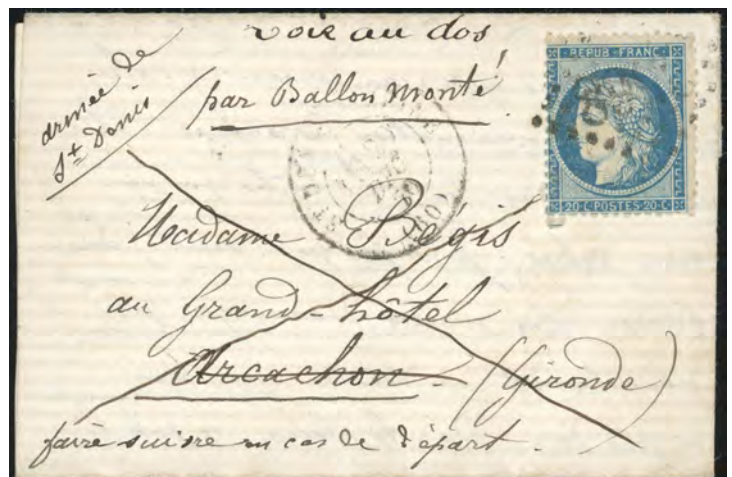 voir au dos
armée de
St Denis
par Ballon monté
REPUB·FRANC·
20·C·POSTES·20·C
ST DE
(60)
Madame Bégis
au Grand-hôtel
Arcachon. (Gironde)
faire suivre en cas de départ.